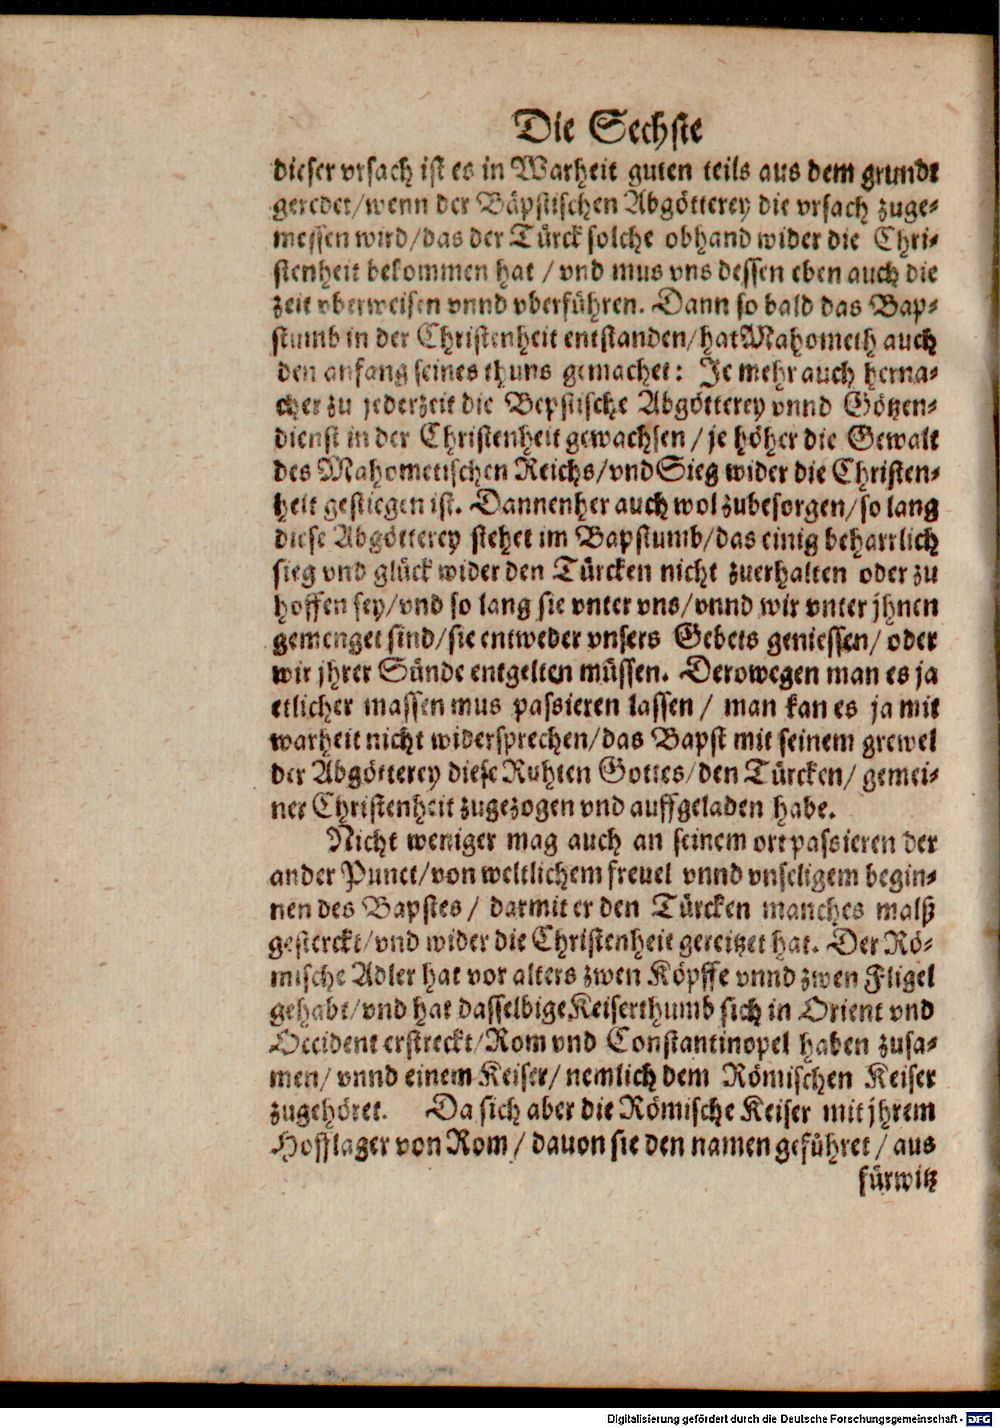 Die Sechste
dieser vrsach ist es in Warheit guten teils aus dem grundt
geredet/wenn der Bäpstischen Abgötterey die vrsach zuge-
messen wird/das der Türck solche obhand wider die Chri-
stenheit bekommen hat / vnd mus vns dessen eben auch die
zeit vberweisen vnnd vberführen. Dann so bald das Bap-
stumb in der Christenheit entstanden/hat Mahometh auch
den anfang seines thuns gemachet: Je mehr auch herna-
cher zu jederzeit die Bepstische Abgötterey vnnd Götzen-
dienst in der Christenheit gewachsen / je höher die Gewalt
des Mahometischen Reichs/vnd Sieg wider die Christen-
heit gestiegen ist. Dannenher auch wol zubesorgen/so lang
diese Abgötterey stehet im Bapstumb/das einig beharrlich
sieg vnd glück wider den Türcken nicht zuerhalten oder zu
hoffen sey/vnd so lang sie vnter vns/vnnd wir vnter jhnen
gemenget sind/sie entweder vnsers Gebets geniessen/ oder
wir jhrer Sünde entgelten müssen. Derowegen man es ja
etlicher massen mus passieren lassen / man kan es ja mit
warheit nicht widersprechen/das Bapst mit seinem grewel
der Abgötterey diese Ruhten Gottes/den Türcken/ gemei-
ner Christenheit zugezogen vnd auffgeladen habe.
Nicht weniger mag auch an seinem ort passieren der
ander Punct/von weltlichem freuel vnnd vnseligem begin-
nen des Bapstes / darmit er den Türcken manches malß
gesterckt/vnd wider die Christenheit gereitzet hat. Der Rö-
mische Adler hat vor alters zwen Köpffe vnnd zwen Fligel
gehabt/vnd hat dasselbige Keiserthumb sich in Orient vnd
Occident erstreckt/Rom vnd Constantinopel haben zusa-
men/ vnnd einem Keiser/ nemlich dem Römischen Keiser
zugehöret. Da sich aber die Römische Keiser mit jhrem
Hofflager von Rom / dauon sie den namen geführet / aus
fürwitz
Digitalisierung gefördert durch die Deutsche Forschungsgemeinschaft - DFG